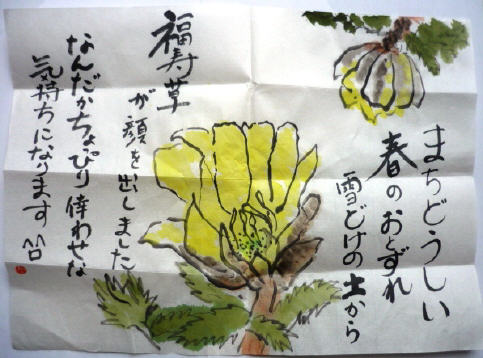 まちどうしい
春のおとずれ
雪どけの土から
福寿草
が顔を出しました
なんだかちょっぴり倖わせな
気持ちになります